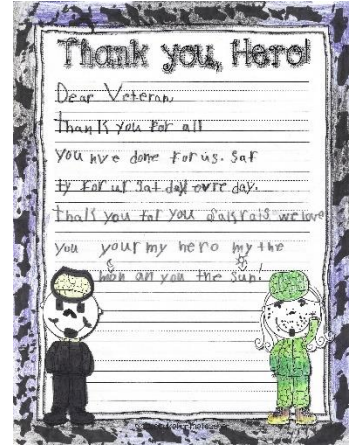 Thank you, Hero!
Dear Veteran,
thank you for all
you hve done for us. Saf
ty for ur
day.
you for you we love
you your my hero my the
mon an you the sun!